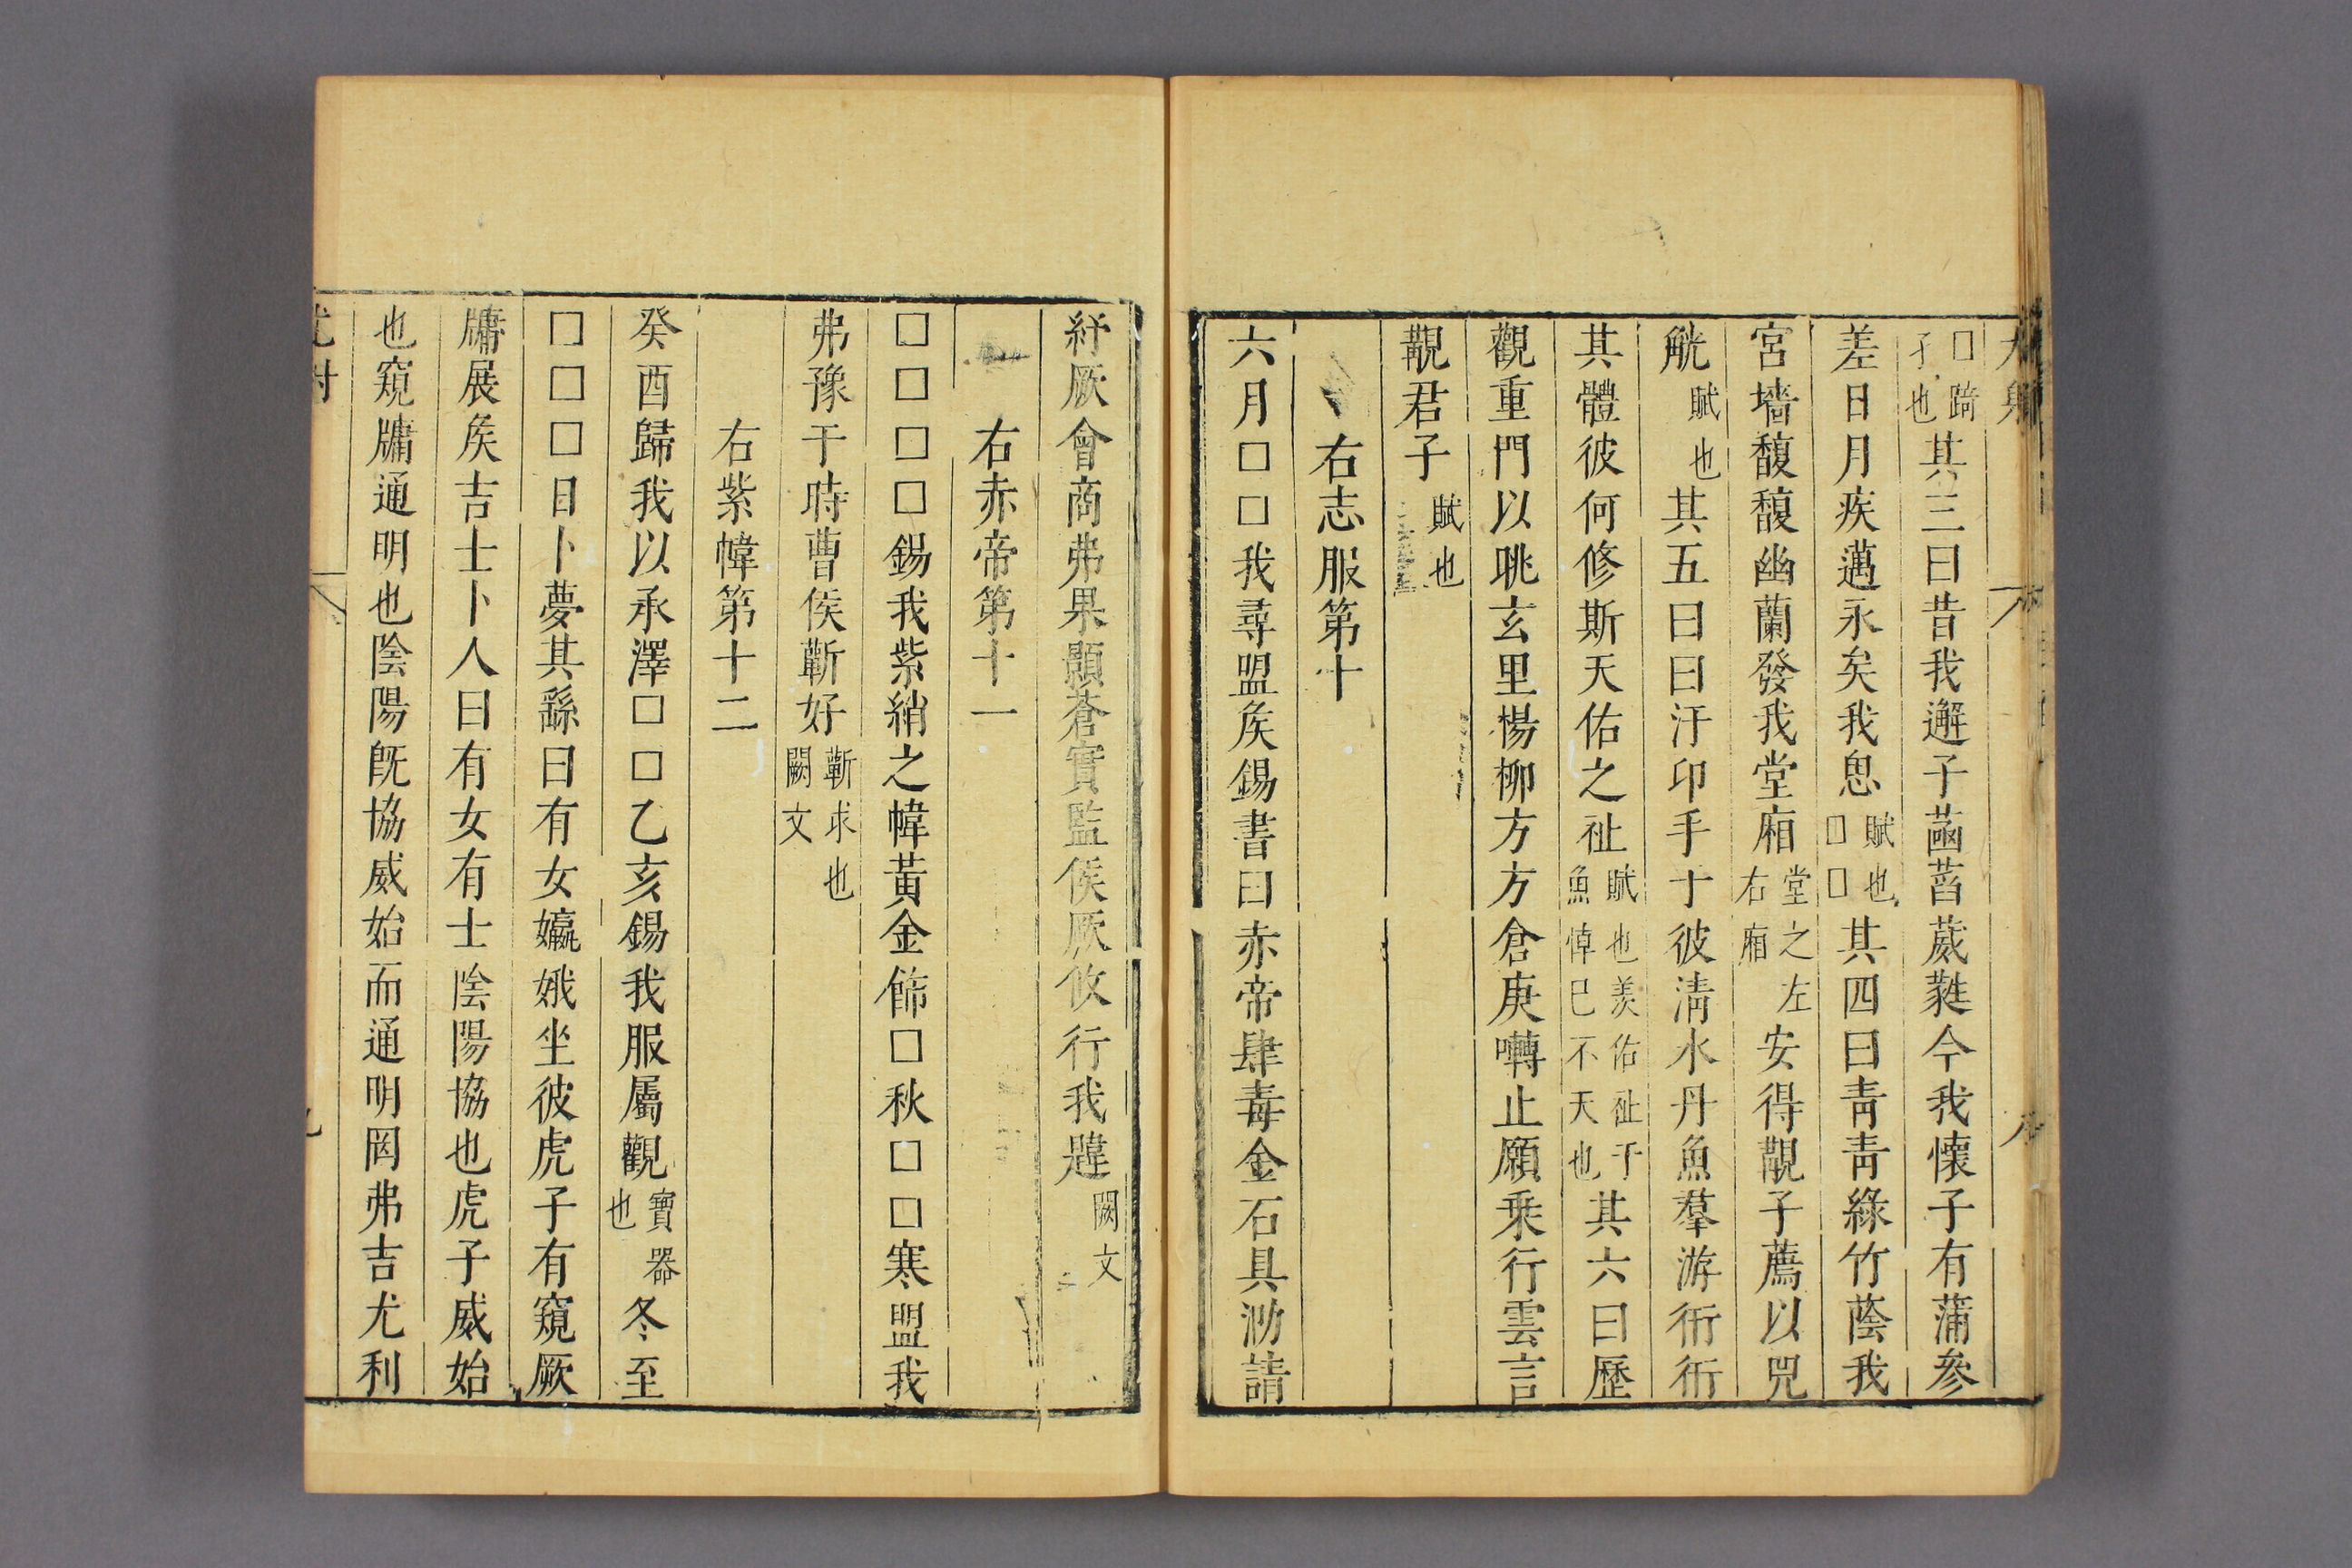 □踦孑也其三曰昔我邂子菡萏葳蕤今我懷子有蒲參
差日月疾邁永矣我思賦也□□其四曰靑靑綠竹蔭我
宮墻馥馥幽蘭發我堂廂堂之左右廂安得覯子薦以兕
觥賦也其五曰曰汙卬手于彼淸水丹魚羣游衎衎
其體彼何修斯天佑之祉賦也羨佑祉于魚悼已不天也其六曰歷
觀重門以眺玄里楊柳方方倉庚囀止願乗行雲言
覯君子賦也
右志服第十
六月□□我尋盟矦錫書曰赤帝肆毒金石具泐請
紓厥會商弗果顯蒼實監侯厥攸行我韙闕文
右赤帝第十一
□□□□錫我紫綃之幃黃金飾□秋□□寒盟我
弗豫干時曹侯蘄好蘄求也闕文
右紫幃第十二
癸酉歸我以承澤□□乙亥錫我服屬觀寶器也冬至
□□□日卜夢其繇曰有女嬴娥坐彼虎子有窺厥
牗展矦吉士卜人曰有女有士陰陽協也虎子威始
也窺牗通明也陰陽旣協威始而通明罔弗吉尤利